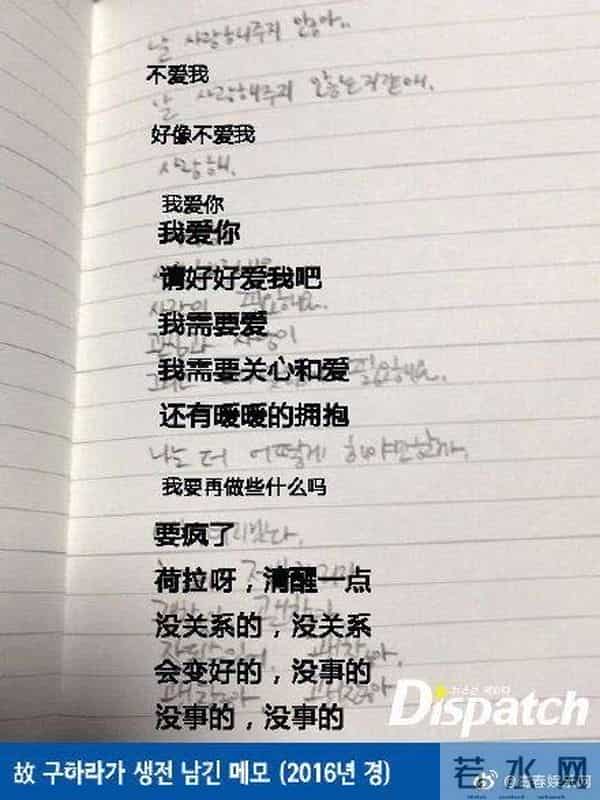 날 사랑해주지 않아..
不爱我
날 사랑해주지 않는거같애.
好像不爱我
사랑해.
我爱你
我爱你
请好好爱我吧
사랑이 필요해요.
我需要爱
我需要关心和爱
필요해요.
还有暖暖的拥抱
나는 더 어떻게 해야만할까.
我要再做些什么吗
要疯了
荷拉呀，清醒一点
没关系的，没关系
괜찮아.
会变好的，没事的
괜찮아. 괜찮아.
没事的，没事的
뉴스는 팩트다
Dispatch
故 구하라가 생전 남긴 메모 (2016년 경)
若水网
@青春娱乐网